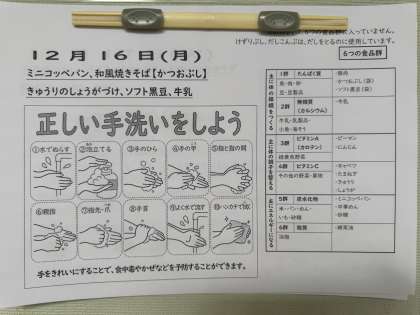 6つの食品群に入っていません。
けずりぶし、だしこんぶは、だしをとるのに使用しています。
12月16日(月)
ミニコッペパン、和風焼きそば【かつおぶし】
きゅうりのしょうがづけ、ソフト黒豆、牛乳
正しい手洗いをしよう
①水でぬらす
②泡立てる
③手のひら
④手の甲
⑤指と指の間
⑥親指
⑦指先・爪
⑧手首
⑨よく水で流す
⑩ハンカチで拭く
手をきれいにすることで、食中毒やかぜなどを予防することができます。
6つの食品群
主に体の組織をつくる
1群 たんぱく質
魚・肉・卵
豆・豆製品
・豚肉
・かつおぶし(袋)
・ソフト黒豆(袋)
2群 無機質
(カルシウム)
牛乳・乳製品・
小魚・海そう
・牛乳
主に体の調子を整える
3群 ビタミンA
(カロテン)
緑黄色野菜
・ピーマン
・にんじん
4群 ビタミンC
その他の野菜・果物
・キャベツ
・たまねぎ
・きゅうり
・しょうが
主にエネルギーになる
5群 炭水化物
米・パン・めん・
いも・砂糖
・ミニコッペパン
・中華めん
・砂糖
6群 脂質
油脂
・綿実油